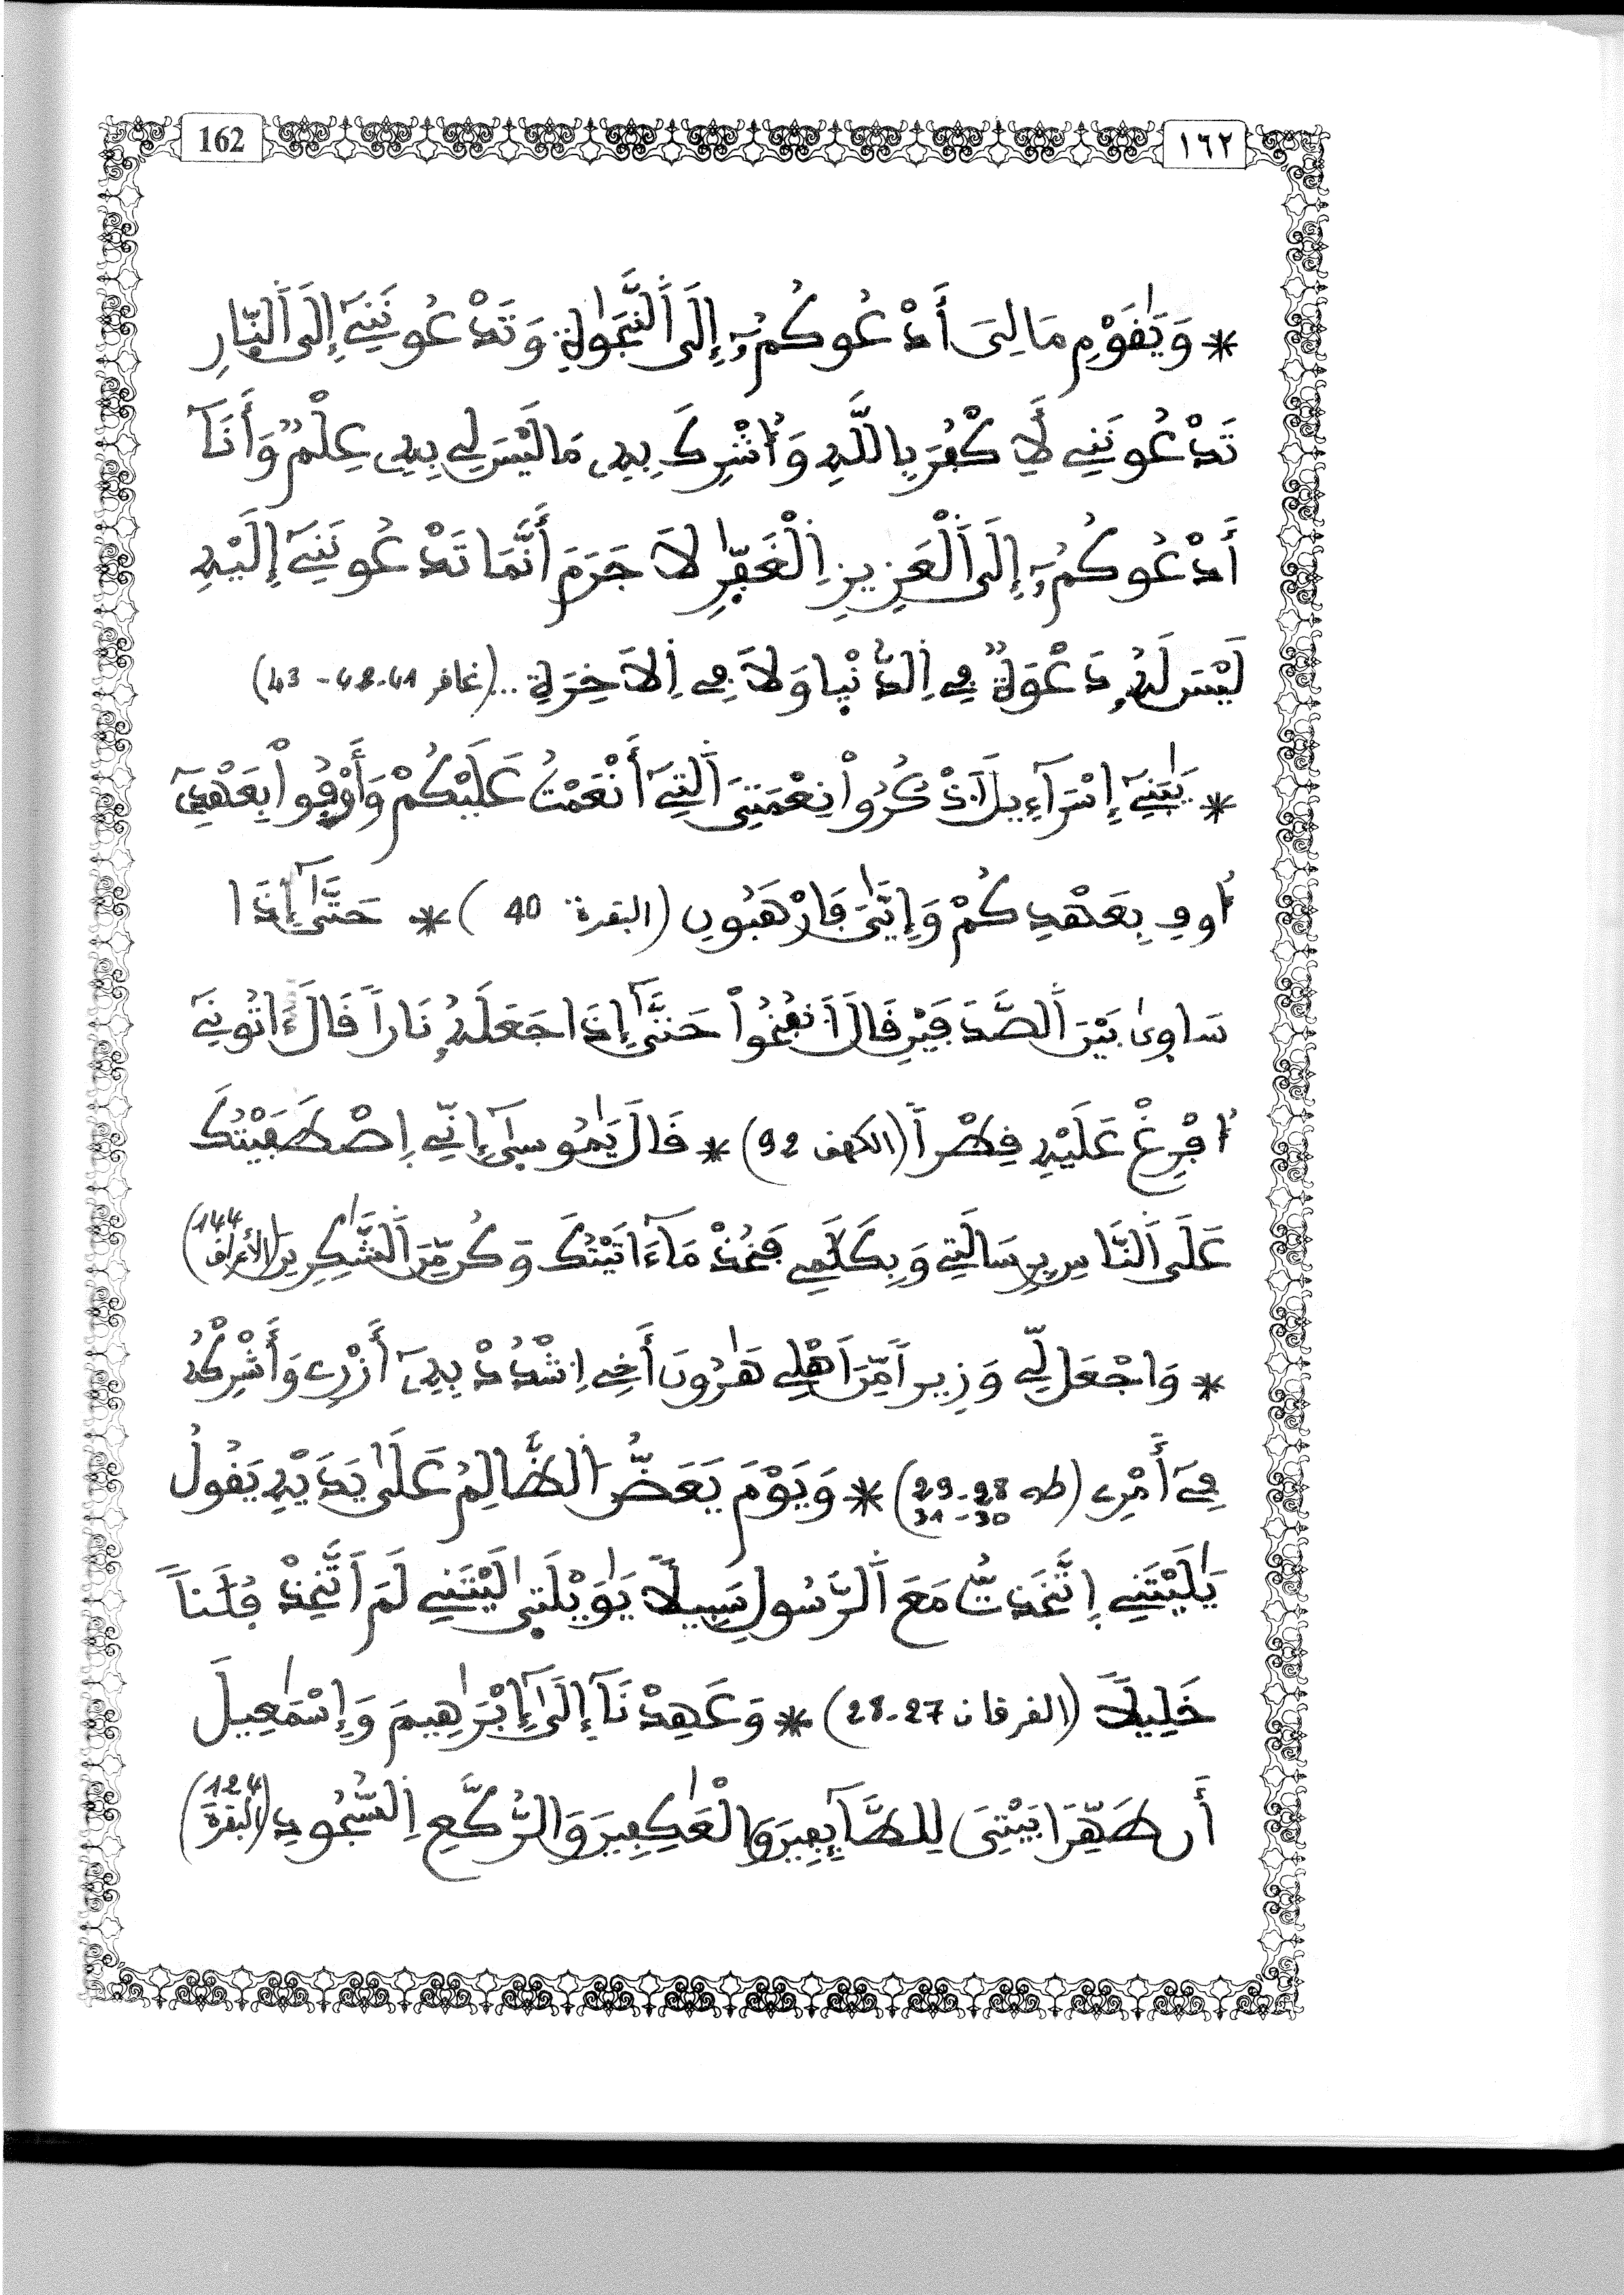 162
١٦٢
* وَيَٰقَوْمِ مَا لِىَ أَدْعُوكُمُۥٓ إِلَى اَ۬لنَّجَوٰةِ وَتَدْعُونَنِےٓ إِلَى اَ۬لنّ۪ارِ
تَدْعُونَنِے لِأَكْفُرَ بِاللَّهِ وَأُشْرِكَ بِهِۦ مَا لَيْسَ لِے بِهِۦ عِلْمٌ وَأَنَآ
أَدْعُوكُمُۥٓ إِلَى اَ۬لْعَزِيزِ اِ۬لْغَفّٰ۪رِ لَا جَرَمَ أَنَّمَا تَدْعُونَنِےٓ إِلَيْهِ
لَيْسَ لَهُۥ دَعْوَةٌ فِے اِ۬لدُّنْي۪ا وَلَا فِے اِ۬لَاخِرَةِ ... (غافر 41-42-43)
* يَٰبَنِےٓ إِسْرَآءِيلَ اَ۟ذْكُرُواْ نِعْمَتِىَ اَ۬لتِےٓ أَنْعَمْتُ عَلَيْكُمْ وَأَوْفُواْ بِعَهْدِىٓ
أُوفِ بِعَهْدِكُمْ وَإِيَّٰىَ فَارْهَبُونِ (البقرة 40) * حَتَّىٰٓ إِذَا
سَاوىٰ بَيْنَ اَ۬لصَّدَفَيْنِ قَالَ اَ۟نفُخُواْ حَتَّىٰٓ إِذَا جَعَلَهُۥ نَاراً قَالَ ءَاتُونِےٓ
أُفْرِغْ عَلَيْهِ قِطْراً (الكهف 92) * قَالَ يَٰمُوس۪ىٰٓ إِنِّے اِ۪صْطَفَيْتُكَ
عَلَى اَ۬لنَّاسِ بِرِسَالَتِے وَبِكَلَٰمِے فَخُذْ مَآ ءَاتَيْتُكَ وَكُن مِّنَ اَ۬لشَّٰكِرِينَ (الأعراف 144)
* وَاجْعَل لِّے وَزِيراً مِّنَ اَهْلِے هَٰرُونَ أَخِے اِ۟شْدُدْ بِهِۦٓ أَزْرِے وَأَشْرِكْهُ
فِےٓ أَمْرِے (طه 28-29 30-31) * وَيَوْمَ يَعَضُّ اُ۬لظَّالِمُ عَلَىٰ يَدَيْهِ يَقُولُ
يَٰلَيْتَنِے اِ۪تَّخَذتُّ مَعَ اَ۬لرَّسُولِ سَبِيلاً يَٰوَيْلَت۪ىٰ لَيْتَنِے لَمَ اَتَّخِذْ فُلَٰناً
خَلِيلاً (الفرقان 27-28) * وَعَهِدْنَآ إِلَىٰٓ إِبْرَٰهِيمَ وَإِسْمَٰعِيلَ
أَن طَهِّرَا بَيْتِىَ لِلطَّآئِفِينَ وَالْعَٰكِفِينَ وَالرُّكَّعِ اِ۬لسُّجُودِ (البقرة 124)